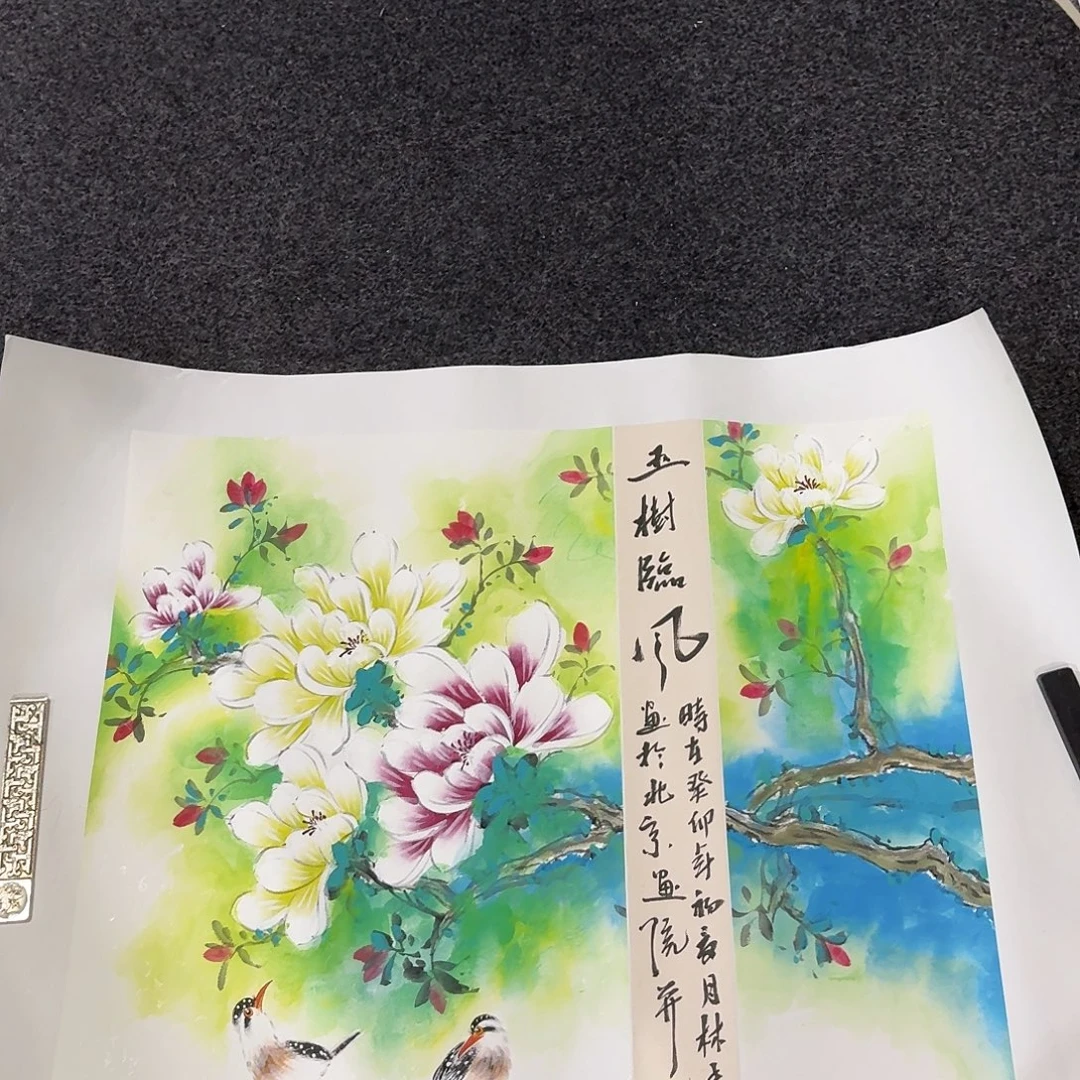 玉樹臨風
時在癸卯年初夏月林
畫於北京畫院并